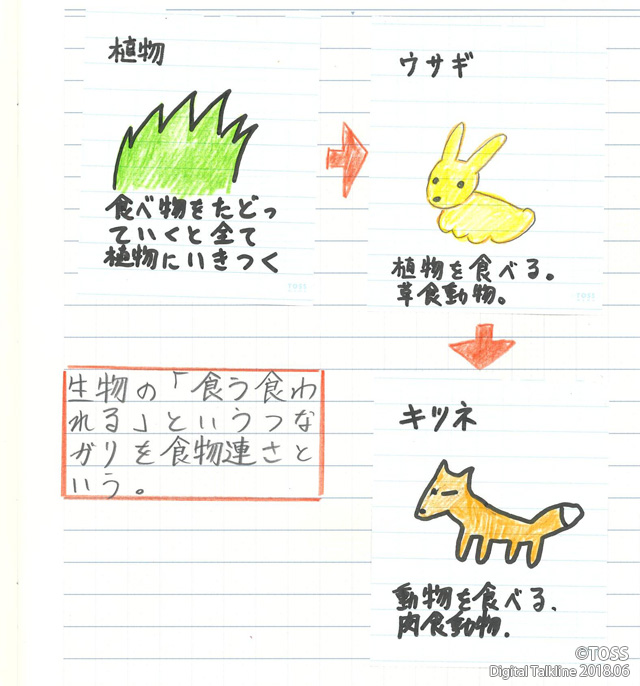 植物
食べ物をたどっ
ていくと全て
植物にいきつく
ウサギ
植物を食べる。
草食動物。
キツネ
動物を食べる、
肉食動物.
生物の「食う食わ
れる」というつな
がりを食物連さと
いう。
TOSS
TOSS
©TOSS
Digital Talkline 2018.06